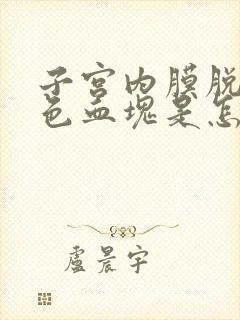 子宫内膜脱
色血塊是怎
盧晨宇